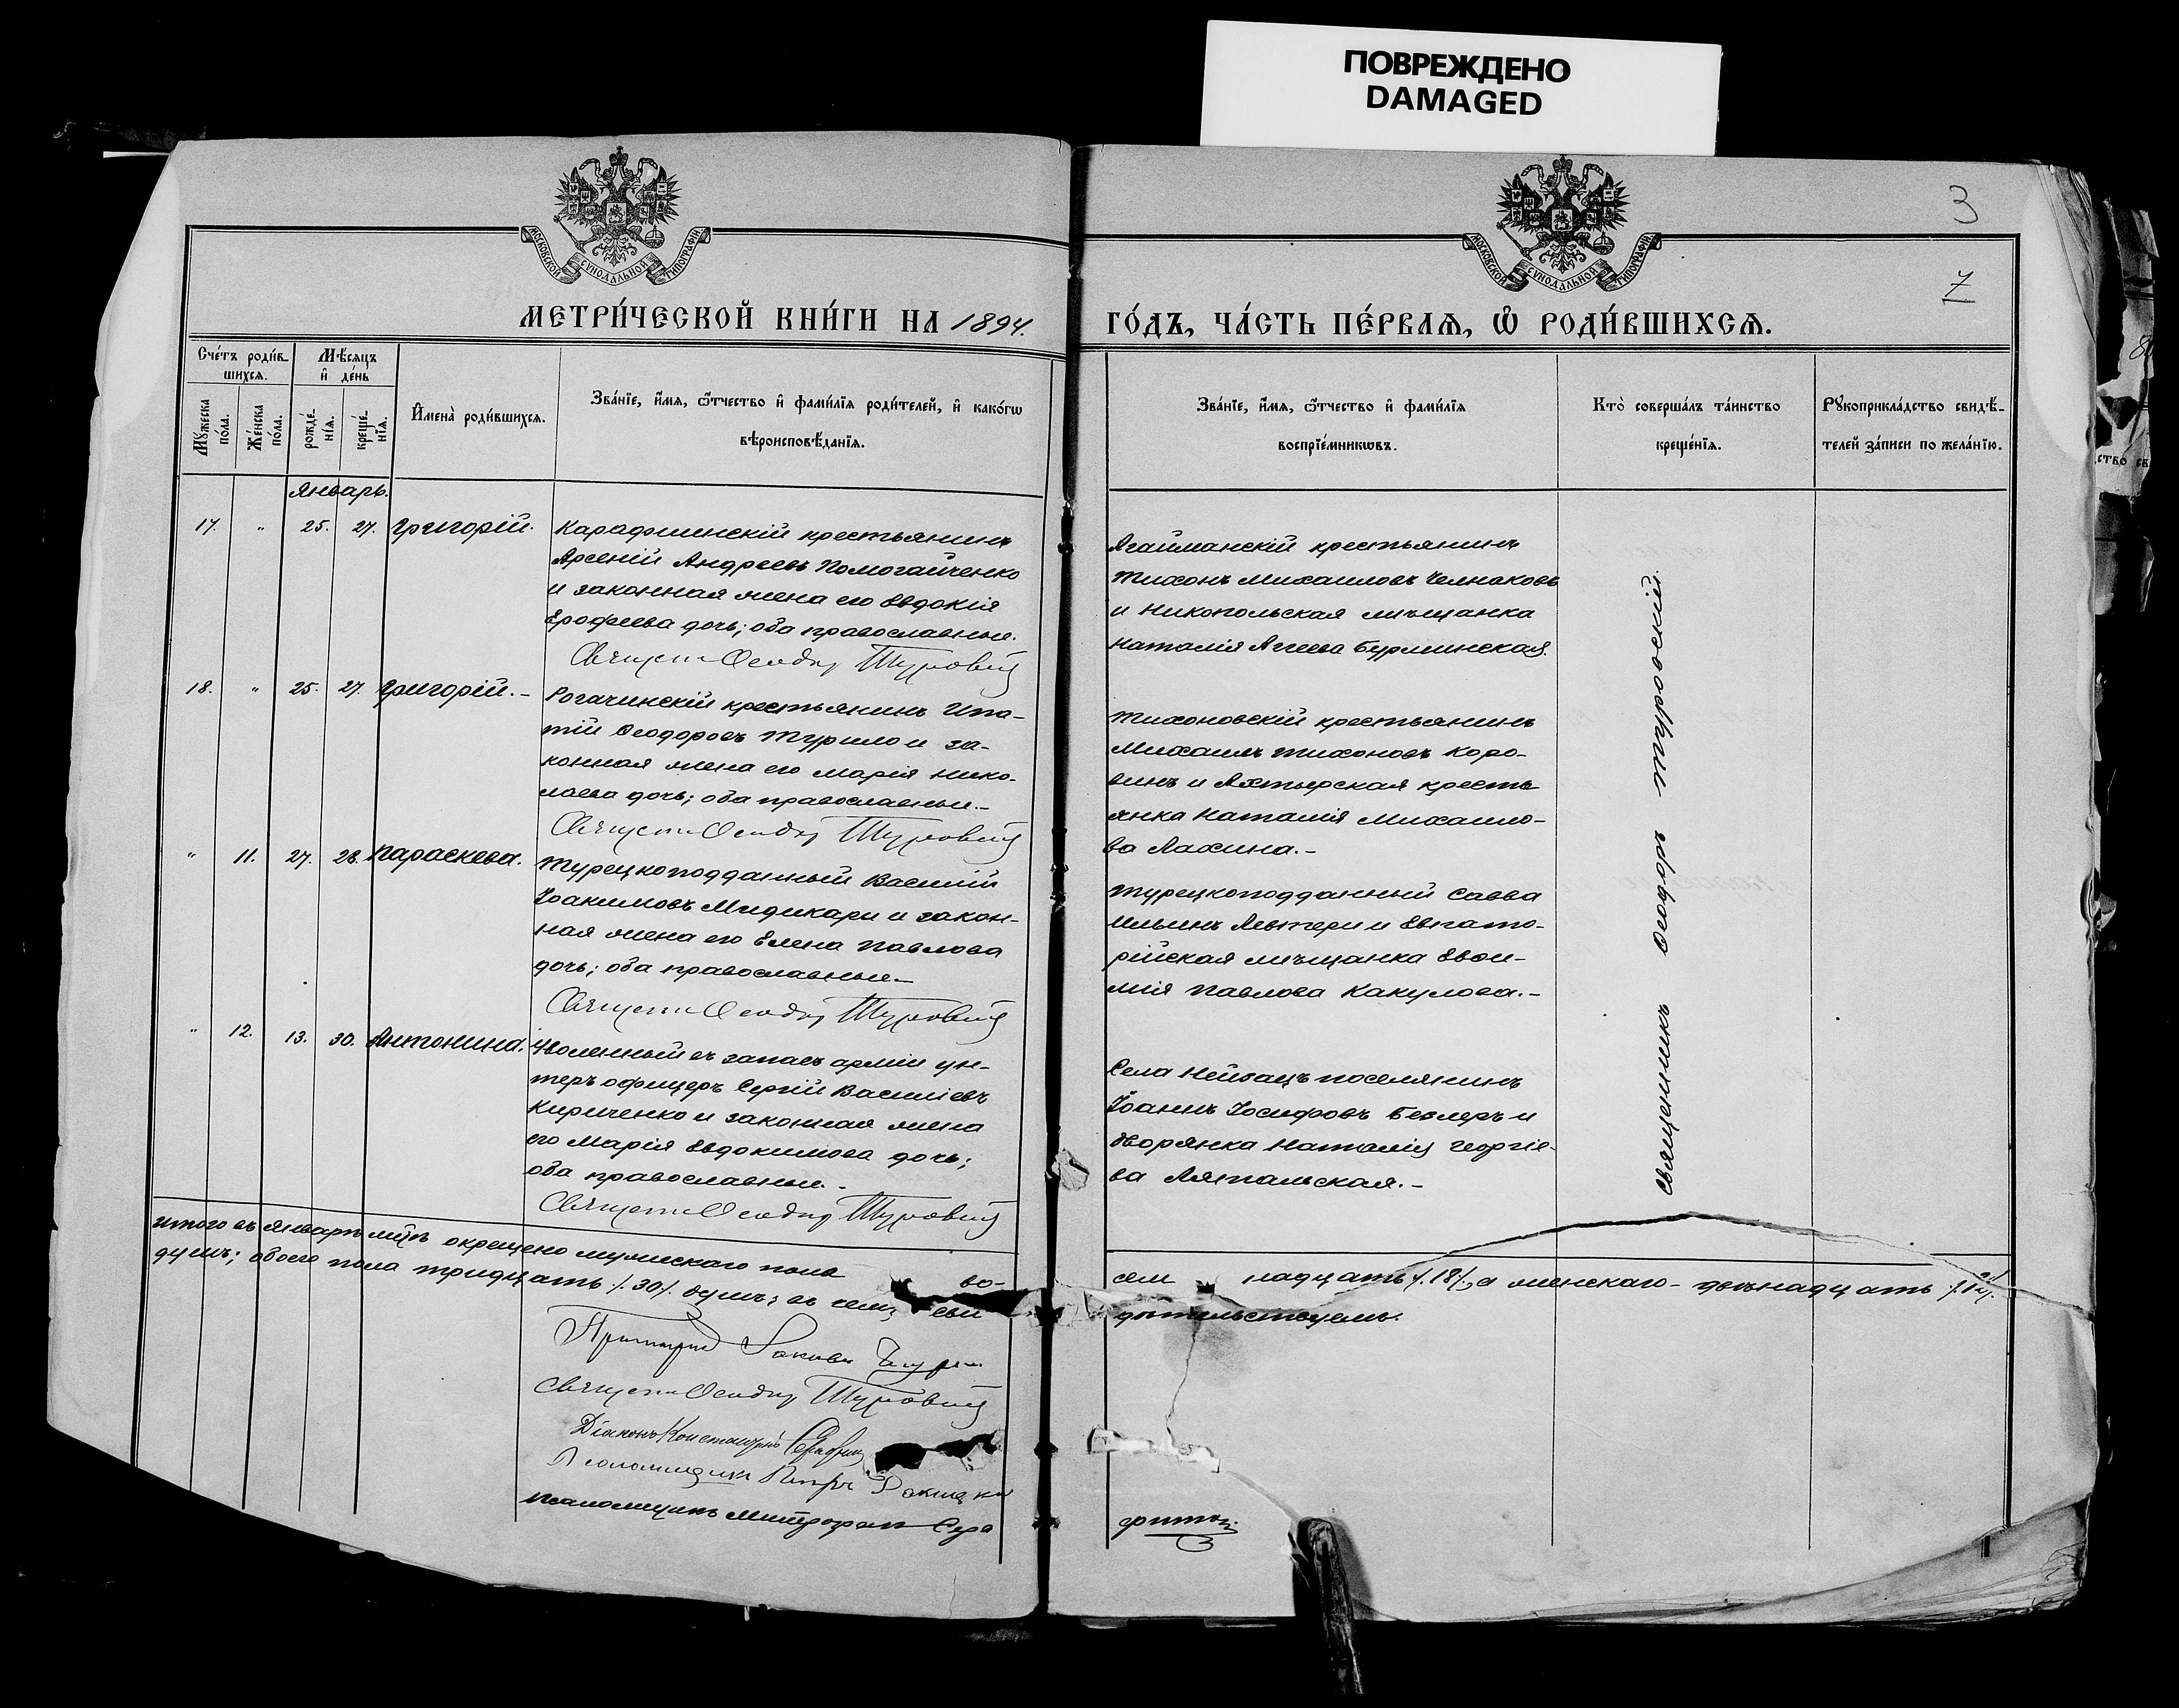 ПОВРЕЖДЕНО
DAMAGED
3
7
МОСКОВСКОЙ СѴНОДАЛЬНОЙ ТИПОГРАФІИ
МОСКОВСКОЙ СѴНОДАЛЬНОЙ ТИПОГРАФІИ
МЕТРИ́ЧЕСКОЙ КНИ́ГИ НА 1894.
ГО́ДЪ, ЧА́СТЬ ПЕ́РВАѦ, Ѡ҆ РОДИ́ВШИХСѦ.
Сче́тъ роди́в-
шихсѧ.
Мѣ́сѧцъ
и҆ де́нь
Мꙋ́жеска
по́ла.
Же́нска
по́ла.
рожде́-
нїѧ.
креще́-
нїѧ.
И҆мена̀ роди́вшихсѧ.
Зва́нїе, и҆́мѧ, ѻ҆́тчество и҆ фами́лїѧ роди́телей, и҆ како́гѡ
вѣроисповѣ́данїѧ.
Зва́нїе, и҆́мѧ, ѻ҆́тчество и҆ фами́лїѧ
воспрїе́мникѡвъ.
Кто̀ соверша́лъ та́инство
креще́нїѧ.
Рꙋкоприкла́дство свидѣ́-
телей за́писи по жела́нїю.
Январь.
17. " 25. 27. Григорій.
Карафшинскій крестьянинъ
Арсеній Андреевъ Помогайченко
и законная жена его Евдокія
Ерофеева дочь; оба православные.
Священ. Ѳеодор Туровскій
Агайманскій крестьянинъ
Тихонъ Михаиловъ Челноковъ
и Никопольская мѣщанка
Наталія Агѣева Бурлинская.
18. " 25. 27. Григорій.-
Рогачинскій крестьянинъ Ипа-
тій Ѳеодоровъ Турило и за-
конная жена его Марія Нико-
лаева дочь; оба православные.-
Священ. Ѳеодор Туровскій
Тихоновскій крестьянинъ
Михаилъ Тихоновъ Коро-
винъ и Ахтырская кресть
янка Наталія Михаило-
ва Лахина.-
" 11. 27. 28. Параскева.
Турецкоподданный Василій
Іоакимовъ Мидикари и закон-
ная жена его Елена Павлова
дочь; оба православные.-
Священ. Ѳеодор Туровскій
Турецкоподданный Савва
Ильинъ Левтери и Евпато-
рійская мѣщанка Евѳи-
мія Павлова Какулова.-
" 12. 13. 30. Антонина.
Уволенный въ запасъ арміи ун-
теръ офицеръ Сергій Василіевъ
Кириченко и законная жена
его Марія Евдокимова дочь;
оба православные.-
Священ. Ѳеодор Туровскій
Села Нейзацъ поселянинъ
Іоаннъ Іосифовъ Безлеръ и
дворянка Наталія Георгіе-
ва Ляпальская.-
Священникъ Ѳеодоръ Туровскій.
Итого въ январѣ м-цѣ окрещено мужскаго пола во-
сем надцать /.18/., а женскаго - двѣнадцать /.12/.
душъ; обоего пола тридцать /.30/. душъ; въ чемъ сви
дѣтельствуемъ.
Священ. Ѳеодор Туровскій
Діаконъ Константинъ
Псаломщикъ Петръ
Псаломщикъ Митрофанъ Сера
фимов.